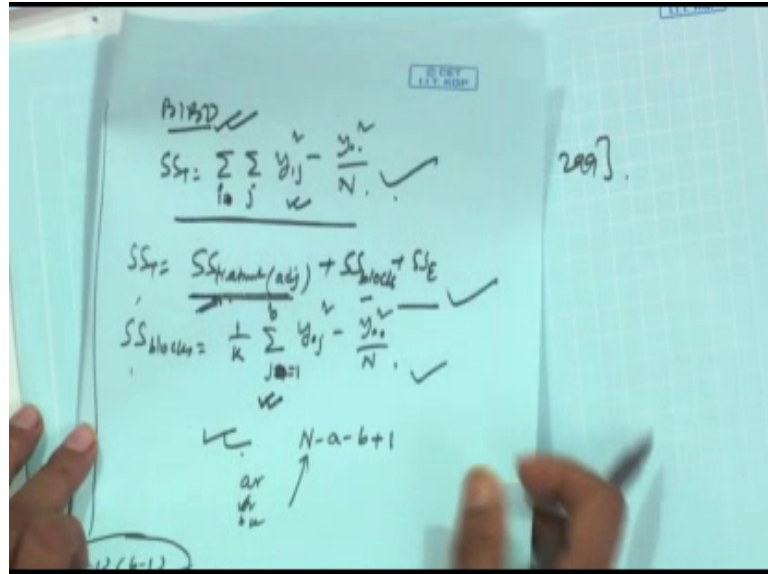 © CET
I.I.T. KGP
BIBD
SS_T = Σ_i Σ_j y_ij^2 - y_..^2 / N.
299].
SS_T = SS_treatment(adj) + SS_block + SS_E
SS_blocks = 1/k Σ_{j=1}^{b} y_.j^2 - y_..^2 / N.
N-a-b+1
ar